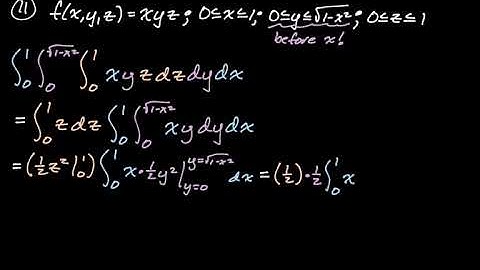 11) f(x,y,z) = xyz ; 0≤x≤1 ; 0≤y≤√(1-x²) ; 0≤z≤1
before x!
∫₀¹ ∫₀^√(1-x²) ∫₀¹ xyz dz dy dx
= ∫₀¹ z dz ∫₀¹ ∫₀^√(1-x²) xy dy dx
= (½z²|₀¹) ∫₀¹ x·½y²|_{y=0}^{y=√(1-x²)} dx = (½)·½ ∫₀¹ x